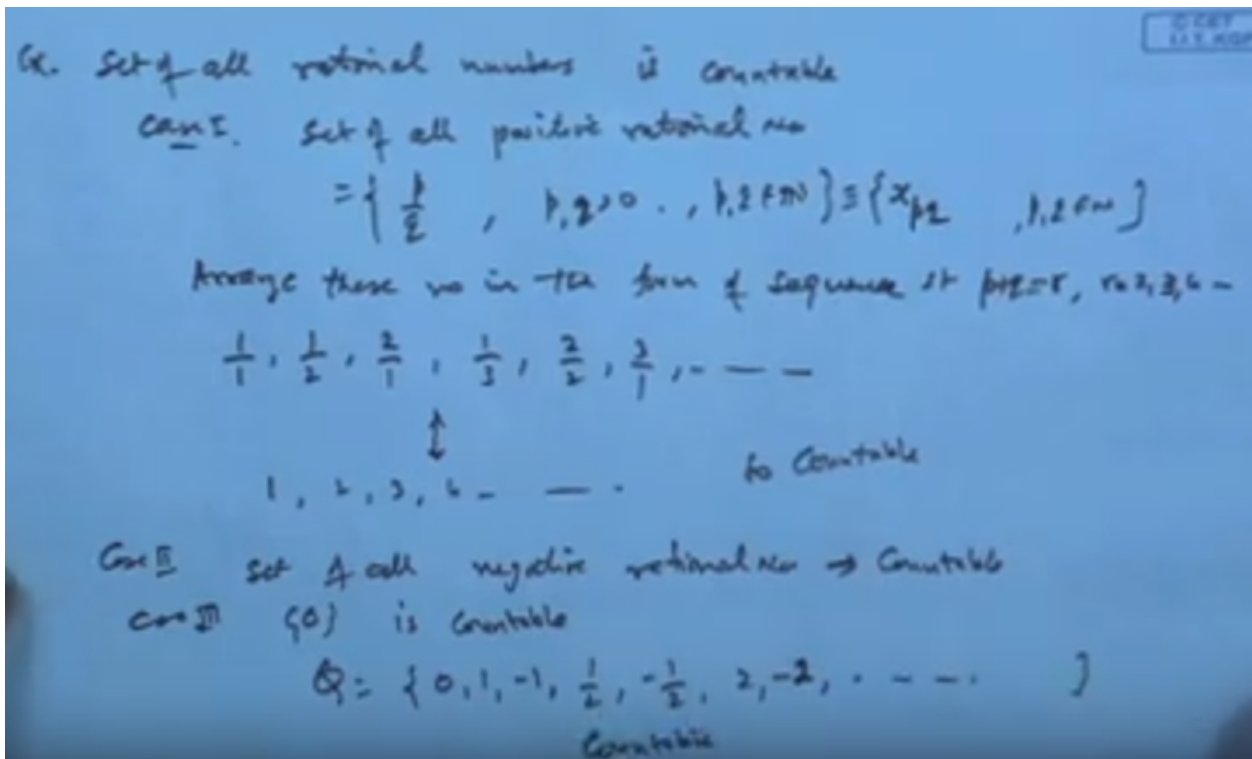 © CET
I.I.T. KGP
Ex. Set of all rational numbers is countable
Case I. Set of all positive rational no
= { p/q , p,q>0 . , p,q ∈ N } ≡ { x_pq , p,q ∈ N }
Arrange these no in the form of sequence st p+q=r, r=2,3,4 –
1/1 , 1/2 , 2/1 , 1/3 , 2/2 , 3/1 , - — —
↕
1 , 2 , 3 , 4 - — . so Countable
Case II Set of all negative rational no → Countable
Case III {0} is Countable
Q = { 0, 1, -1, 1/2, -1/2, 2, -2, . - - - . }
Countable